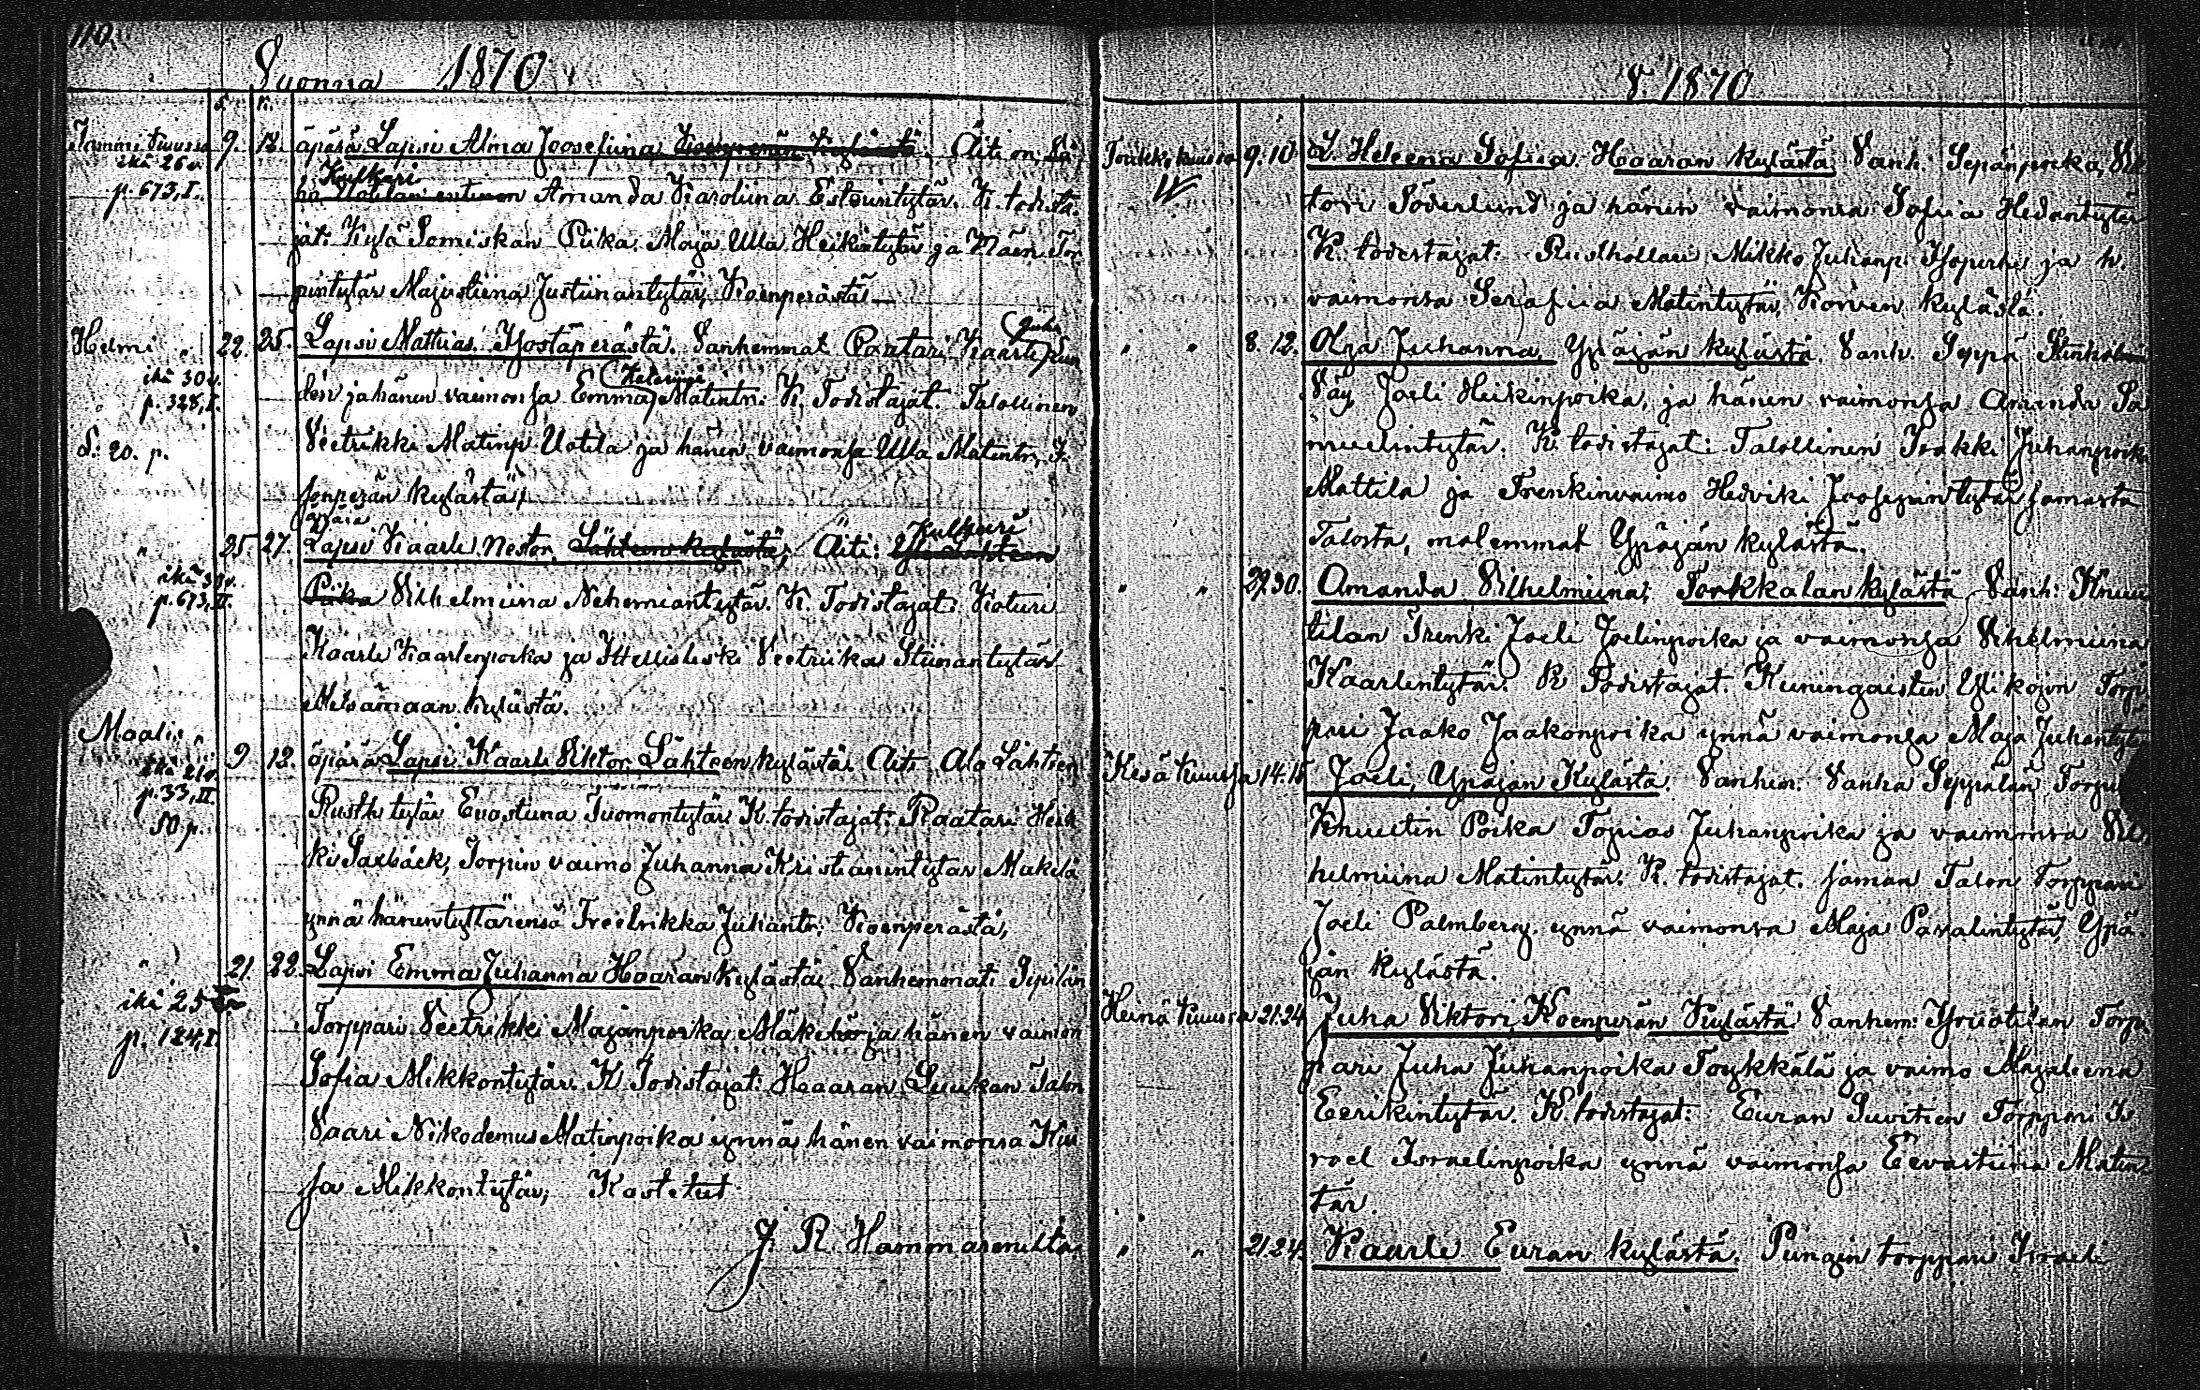 110.
Vuonna 1870
s. k.
Tammi kuussa 9. 12. äpärä Lapsi Alma Joosefiina Koenperän Kylästä. Äiti on
ikä 26 v Kulkari
p. 673, I. entinen Amanda Karoliina Esteuntytär. K. todista-
jat: Kylä Piika Maja Ulla Heikintytär ja
pintytär Majastiena Justiinantytär Koenperästä
Helmi „ 22. 25. Lapsi Mattias. Isostäperästä. Vanhemmat Raatari Kaarle Juha
ikä 30 v.
p. 328, I. ja hänen vaimonsa Emma Matintr. K. Todistajat. Talollinen
S: 20. p. Veetrikki Matinp. Uotila ja hänen vaimonsa Ulla Matintr. I-
sonperän kylästä,
äpärä
„ 25. 27. Lapsi Kaarle Nestor, Lähteen kylästä; Äiti: Kulkuri
ikä 30 v.
p. 673, II. Piika Vilhelmiina Nehemiantytär. K. Todistajat:
Kaarle Kaarlenpoika ja Itsellisleski Veetriika Stiinantytär
Metsämaan kylästä.
Maalis „ 9 12. äpärä Lapsi Kaarle Viktor Lähteen kylästä. Äiti Ala Lähteen
ikä 21 v.
p. 33, II. Rusth tytär Evastiina Tuomontytär K. todistajat: Raatari Heik-
50 p. ki Saxbäck, Torpin vaimo Juhanna Kristianintytär Mäkelä
ynnä hänen tyttärensä Freedrikka Juhantr. Koenperästä,
„ 21. 22. Lapsi Emma Juhanna Haaran kylästä. Vanhemmat:
ikä 25 Torppari Veetrikki Majanpoika ja hänen vaimon
p. 124, I Sofia Mikkontytär. K. Todistajat: Haaran Luukan Talon
Vaari Nikodemus Matinpoika ynnä hänen vaimonsa Kai-
sa Mikkontytär; Kastetut
J. R. Hammarenilta
V. 1870
Toukkokuussa 9. 10. L. Heleena Sofiia Haaran kylästä Vanh. Sepänpoika Vik-
tori Söderlund ja hänen vaimonsa Sofiia Hedantytär
K. todistajat: Rusthollari Mikko Juhanp. Isoperhe ja h.
vaimonsa Serafiia Matintytär, Korven kylästä.
„ „ 8. 12. Olga Juhanna Ypäjän kylästä. Vanh. Seppä
Väy Joeli Heikinpoika, ja hänen vaimonsa Amanda Sa-
muelintytär. K. todistajat: Talollinen Iisakki Juhanpoik
Mattila ja Trenkinvaimo Hedviki Joosepintytär samasta
Talosta, molemmat Ypäjän kylästä.
„ „ 29. 30. Amanda Vilhelmiina; Torkkalan kylästä Vanh: Knuu-
tilan Trenki Joeli Joelinpoika ja vaimonsa Vihelmiina
Kaarlentytär. K. Todistajat. Kuningaisten Ylikojon Torp-
pari Jaako Jaakonpoika ynnä vaimonsa Maja Juhantyt
Kesä kuussa 14. 15. Joeli, Ypäjän Kylästä. Vanhem: Vanha Seppälän Torpp
Knuutin Poika Topias Juhanpoika ja vaimonsa Vil-
helmiina Matintytär. K. todistajat. saman Talon Torppari
Joeli Palmberg, ynnä vaimonsa Maja Pavalintytär, Ypä-
jän kylästä.
Heinä kuussa 21. 24 Juha Viktori Koenperän Kylästä Vanhem: Torp-
pari Juha Juhanpoika Toykkälä ja vaimo Majaleena
Eerikintytär. K. todistajat: Euran Torppari Is-
rael Israelinpoika ynnä vaimonsa Eevastiina Matin
tär.
„ „ 21. 24. Kaarle Euran kylästä. torppari Israeli